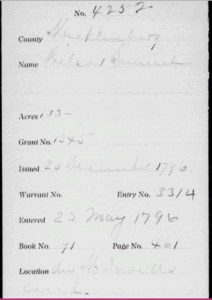 No. 4252
County Mecklenburg
Name Wilson Samuel
Acres 175
Grant No. 1345
Issued 20 December 1796
Warrant No. Entry No. 3314
Entered 23 May 1796
Book No. 91 Page No. 461
Location
Creek.